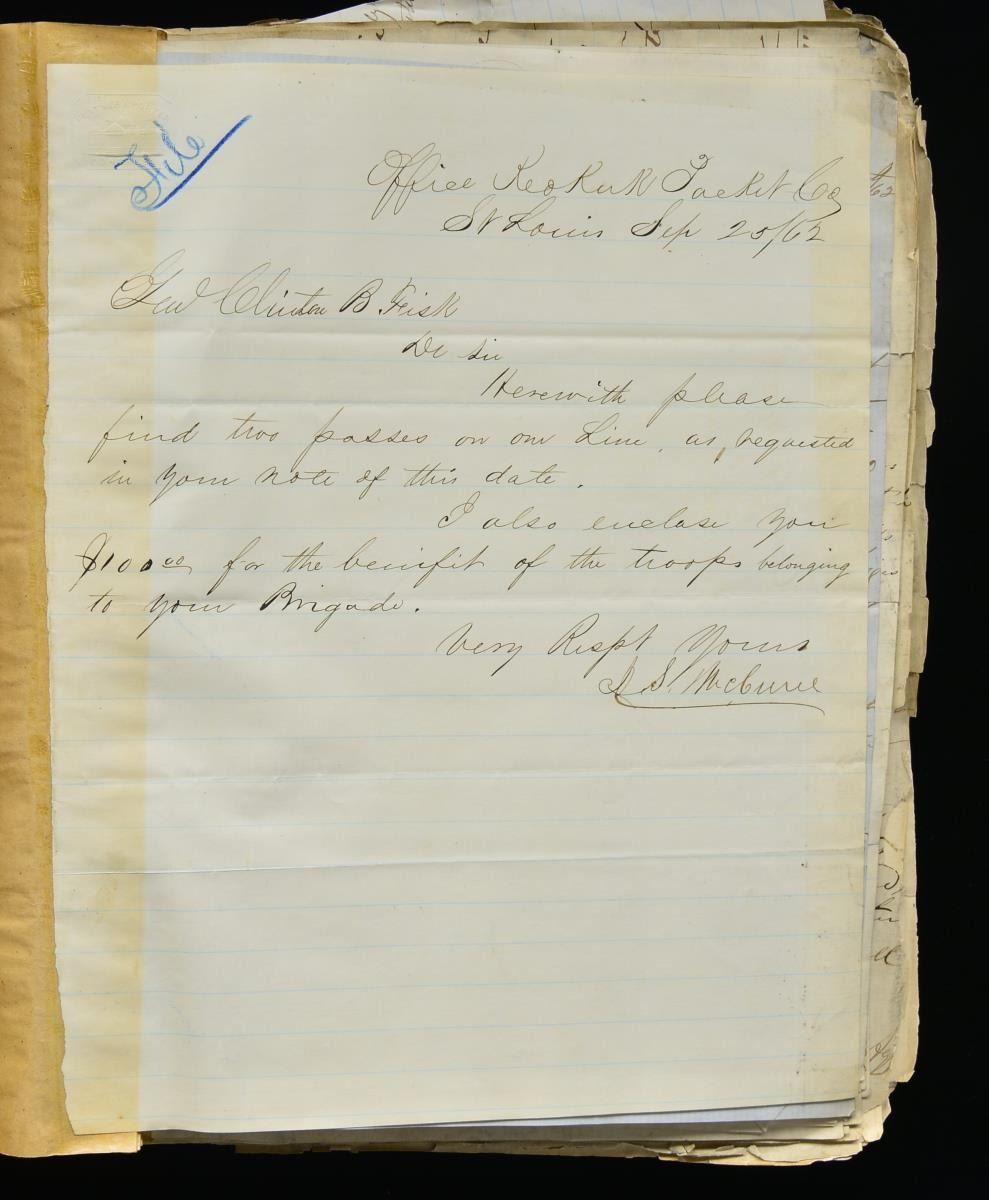 File
Office Keokuk Packet Co
St Louis Sep 25/62
Genl Clinton B Fisk
Dr Sir
Herewith please
find two passes on our Line, as requested
in your note of this date.
I also enclose you
$100 00 for the benifit of the troops belonging
to your Brigade.
Very Respt Yours
J S. McCune